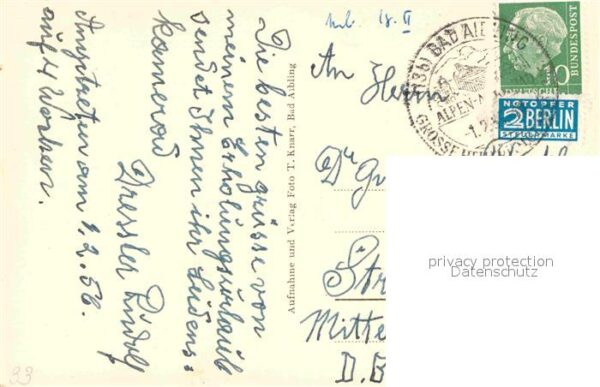 Die besten Grüsse von
meinem Erholungsurlaub
sendet Ihnen ihr Leidens:
kamerad
Dressler Rudolf
Angetreten am 1.2.56.
auf 4 Wochen.
Aufnahme und Verlag Foto T. Knarr, Bad Aibling
18. II
An Herrn
Dr
Str
Mitte
D.B
BAD AIBLING
ALPEN
GROSSE HEIL
DEUTSCHE
BUNDESPOST
10
NOTOPFER
2 BERLIN
STEUERMARKE
privacy protection
Datenschutz
33